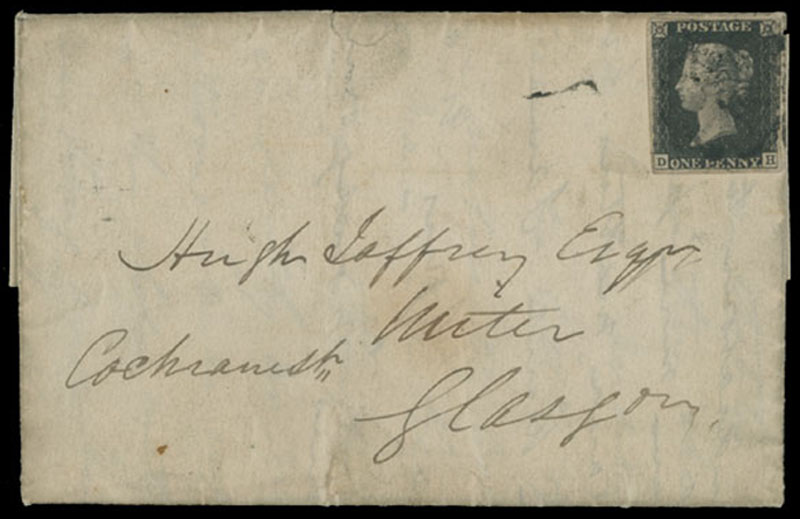 POSTAGE
D ONE PENNY H
Hugh Jaffrey Esqr
Writer
Cochrane St
Glasgow.